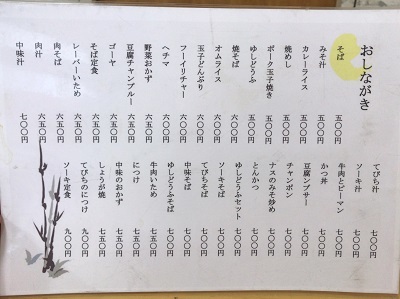 おしながき
そば 五〇〇円
みそ汁 五〇〇円
カレーライス 五〇〇円
焼めし 五〇〇円
ポーク玉子焼き 五五〇円
ゆしどうふ 五五〇円
焼そば 五五〇円
オムライス 六〇〇円
玉子どんぶり 六〇〇円
フーイリチャー 六五〇円
ヘチマ 六五〇円
野菜おかず 六五〇円
豆腐チャンプルー 六五〇円
ゴーヤ 六五〇円
そば定食 六五〇円
レーバーいため 六五〇円
肉そば 六五〇円
肉汁 六五〇円
中味汁 七〇〇円
てびち汁 七〇〇円
ソーキ汁 七〇〇円
牛肉とピーマン 七〇〇円
かつ丼 七〇〇円
豆腐ンブサー 七〇〇円
チャンポン 七〇〇円
ナスのみそ炒め 七〇〇円
とんかつ 七〇〇円
ゆしどうふセット 七〇〇円
ソーキそば 七〇〇円
てびちそば 七〇〇円
中味そば 七〇〇円
ゆしどうふそば 七〇〇円
牛肉いため 七五〇円
につけ 七五〇円
中味のおかず 七五〇円
しょうが焼 七五〇円
てびちのにつけ 九〇〇円
ソーキ定食 九〇〇円